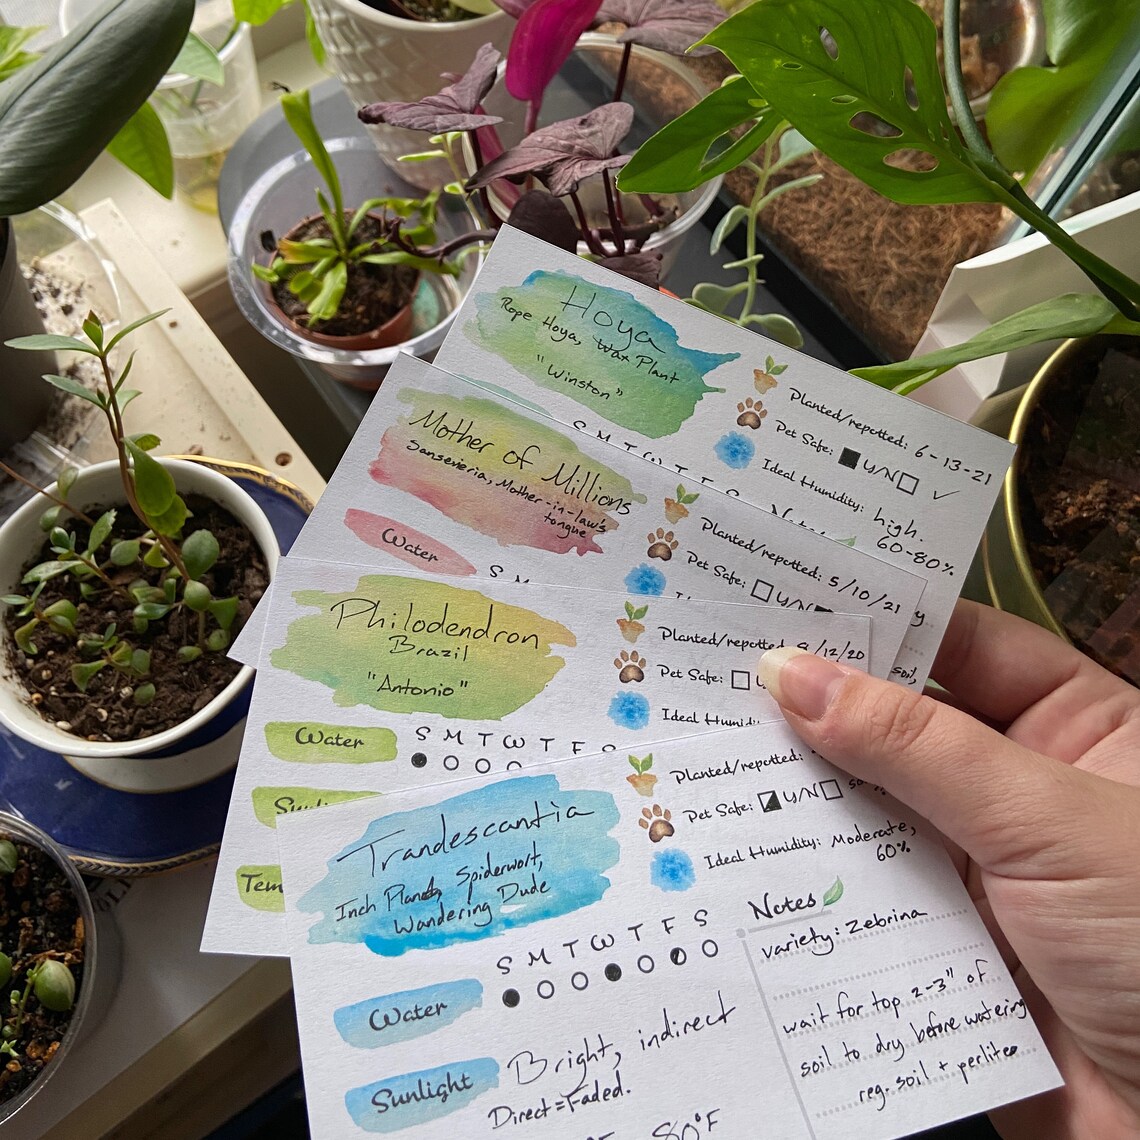 Hoya
Rope Hoya, Wax Plant
"Winston"
Planted/repotted: 6-13-21
Pet Safe: Y/N
Ideal Humidity: high.
60-80%
S M T W T F S
Notes
Mother of Millions
Sanseveria, Mother-in-law's
tongue
Water
Planted/repotted: 5/10/21
Pet Safe: Y/N
S M
soil,
Philodendron
Brazil
"Antonio"
Planted/repotted 8/12/20
Pet Safe:
Ideal Humidi
Water
S M T W T F S
Sunli
Tem
Tradescantia
Inch Plant, Spiderwort,
Wandering Dude
Planted/repotted:
Pet Safe: Y/N
Ideal Humidity: Moderate,
60%
Notes
variety: Zebrina
wait for top 2-3" of
soil to dry before watering
reg. soil + perlite
S M T W T F S
Water
Sunlight
Bright, indirect
Direct=Faded.
80°F